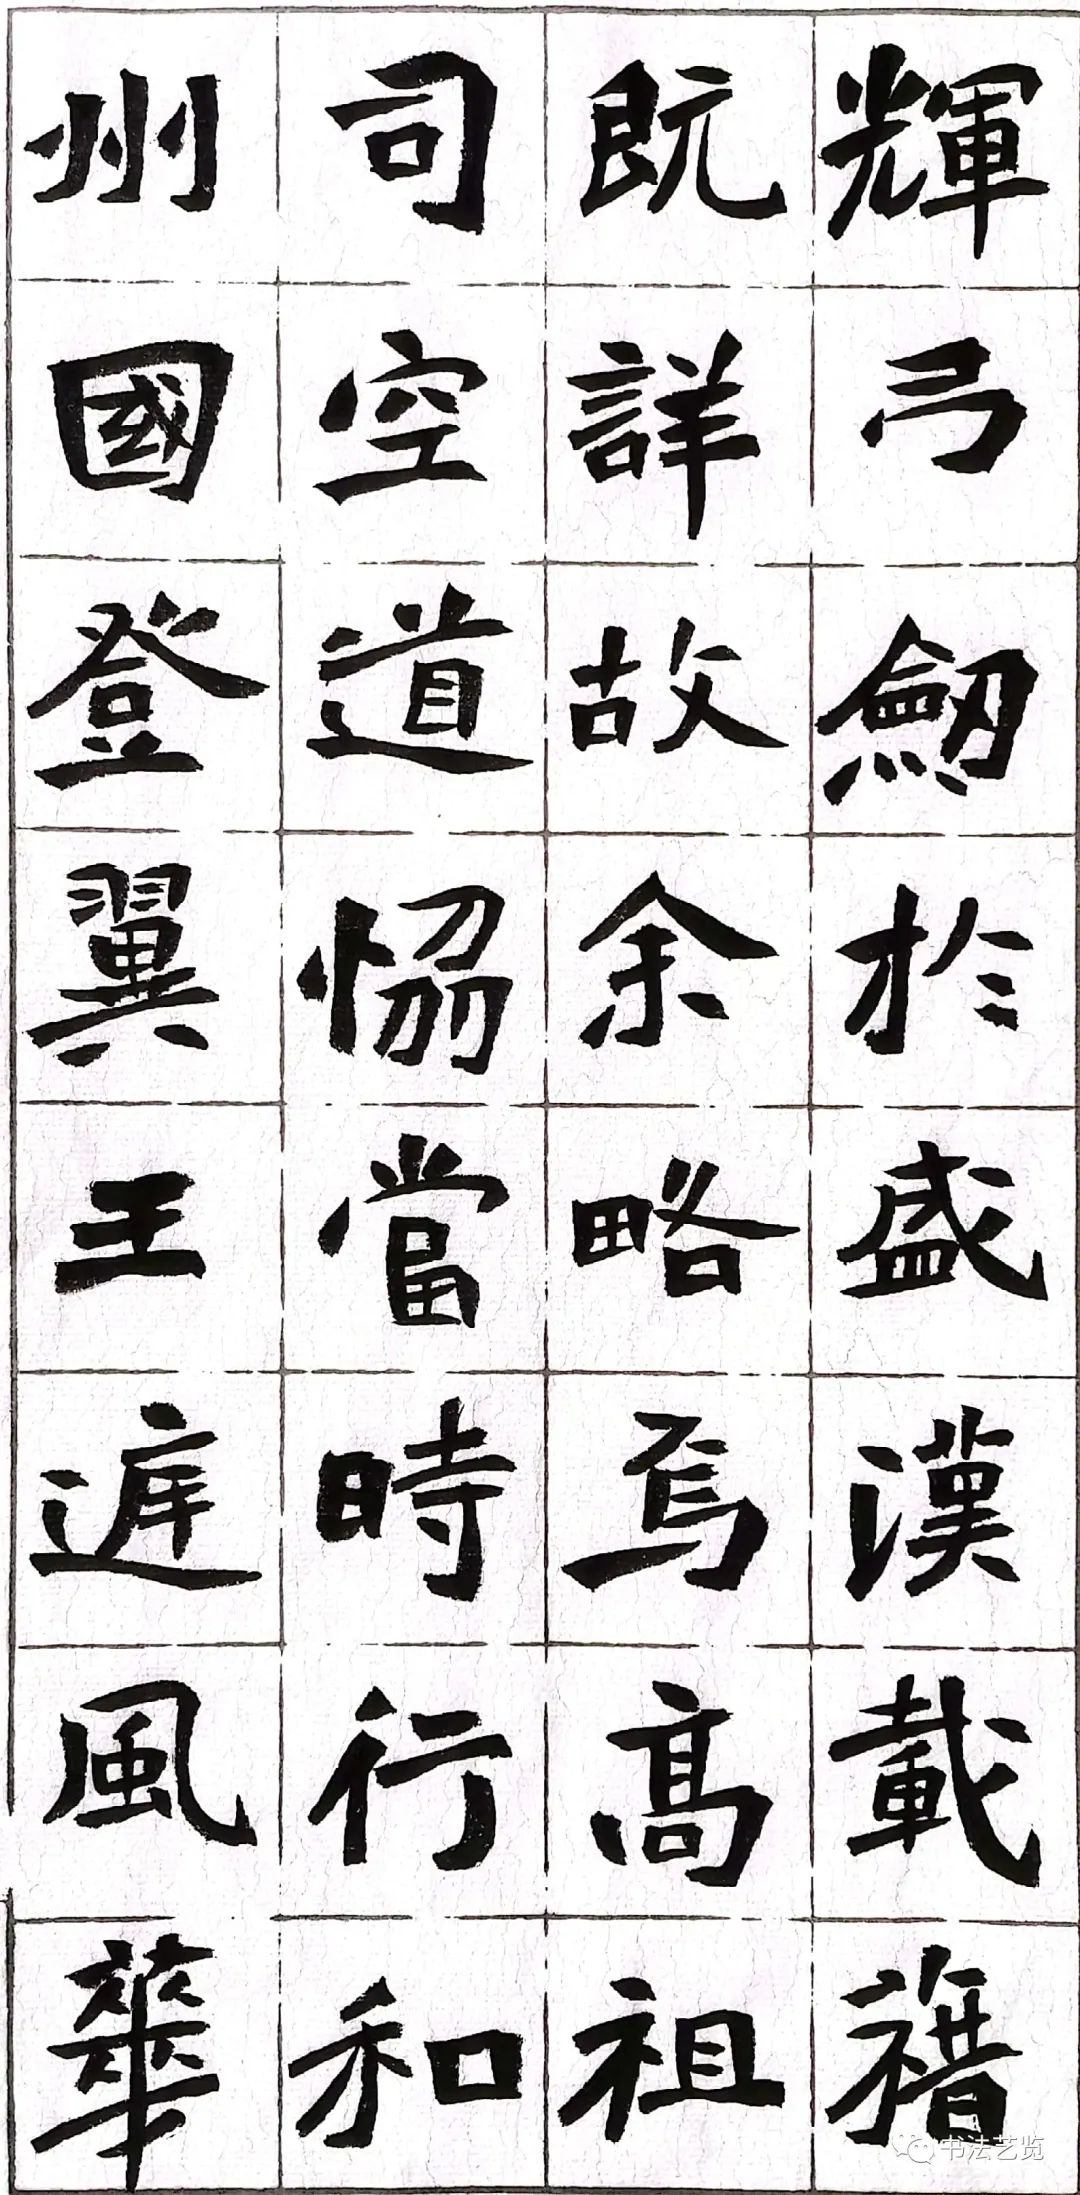 輝弓劒於盛漢載籍
既詳故余略焉高祖
司空道協當時行和
州國登翼王遲風華
书法艺览